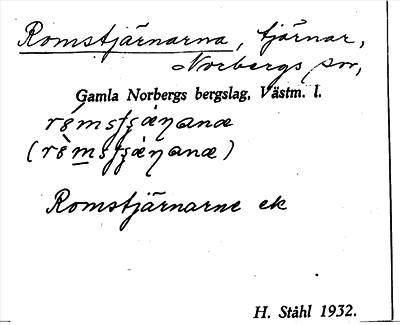 Romstjärnarna, tjärnar,
Norbergs sn,
Gamla Norbergs bergslag, Västm. l.
Romstjärnarne ek
H. Ståhl 1932.